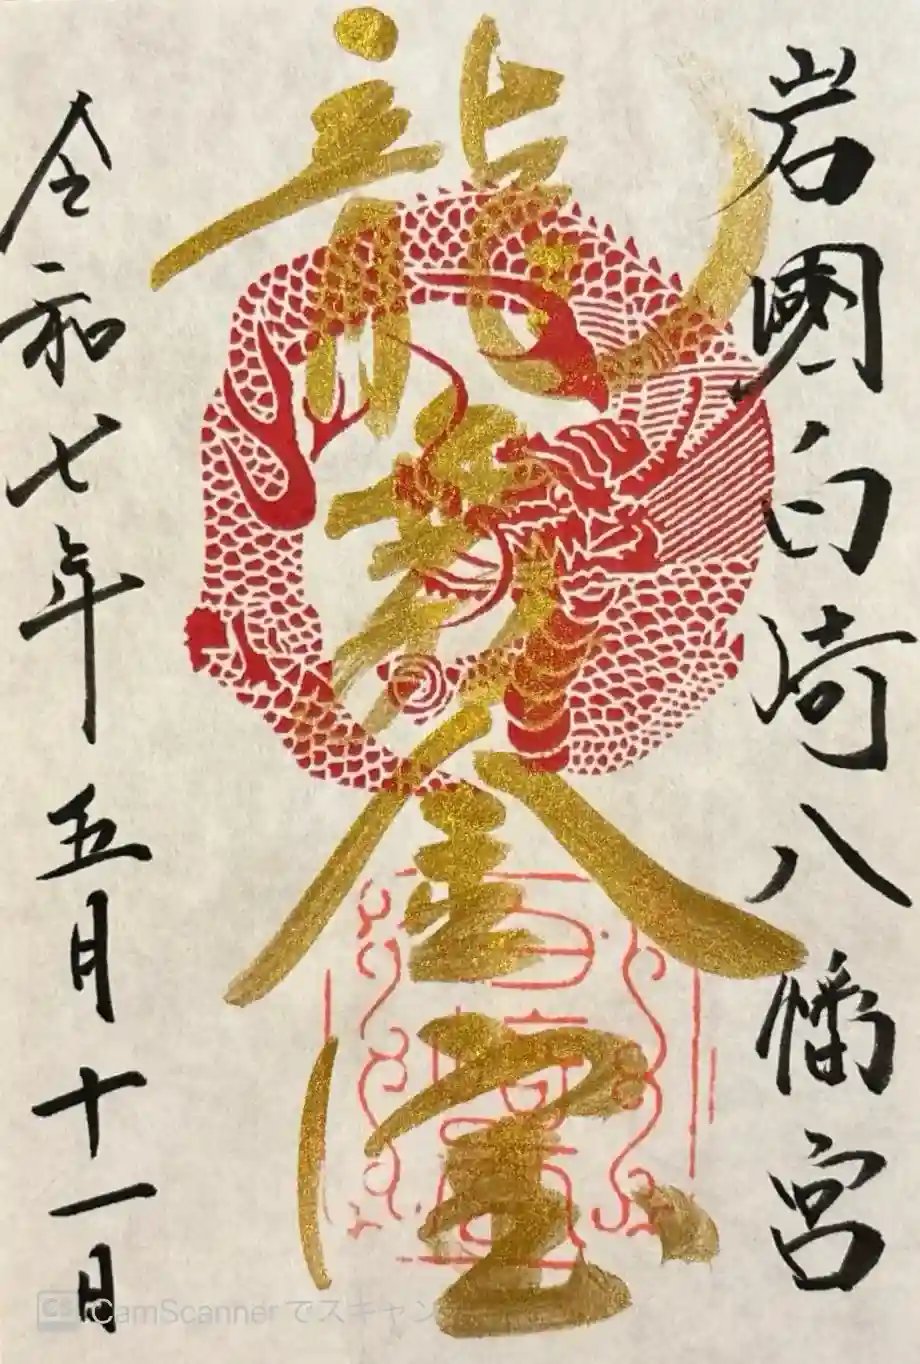 岩國白崎八幡宮
龍
金宝
令和七年五月十一日
CS CamScannerでスキャン